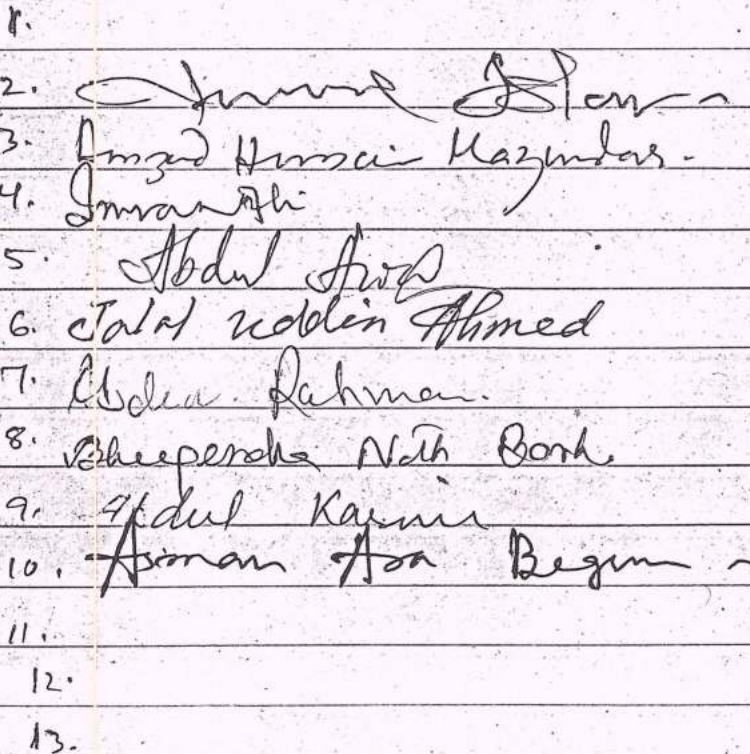 1.
2. Islam
3. Amzad Hussain Mazumdar.
4. Imran Ali
5. Abdul
6. Jalal uddin Ahmed
7. Abdul Rahman.
8. Bhupendra Nath Borah.
9. Abdul Karim
10. Asman Ara Begum
11.
12.
13.